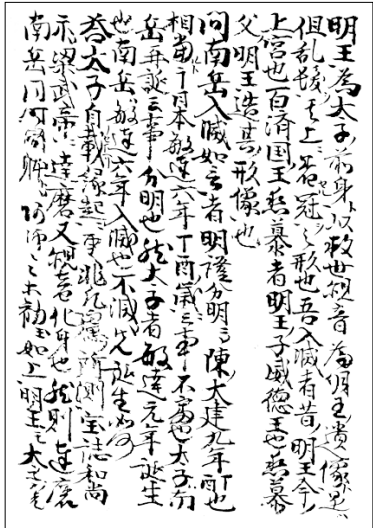 明王為太子前身以救世観音為明王遺像
但乱髪其上著冠之形也吾入滅者昔明王今
上宮也百済国王恋慕者明王子威徳王也恋慕
父明王造其形像也
問南岳入滅如言者明分明陳大建九年丁酉也
相当于日本敏達六年丁酉歳三事不審也太子
岳再誕三事分明也然太子者敏達元年誕生
也南岳敏達六年入滅也不滅先誕生如何
答太子自載縁起更非凡所測宝誌和尚
示梁武帝達磨又観音化身也然則達磨
南岳同何如上明王